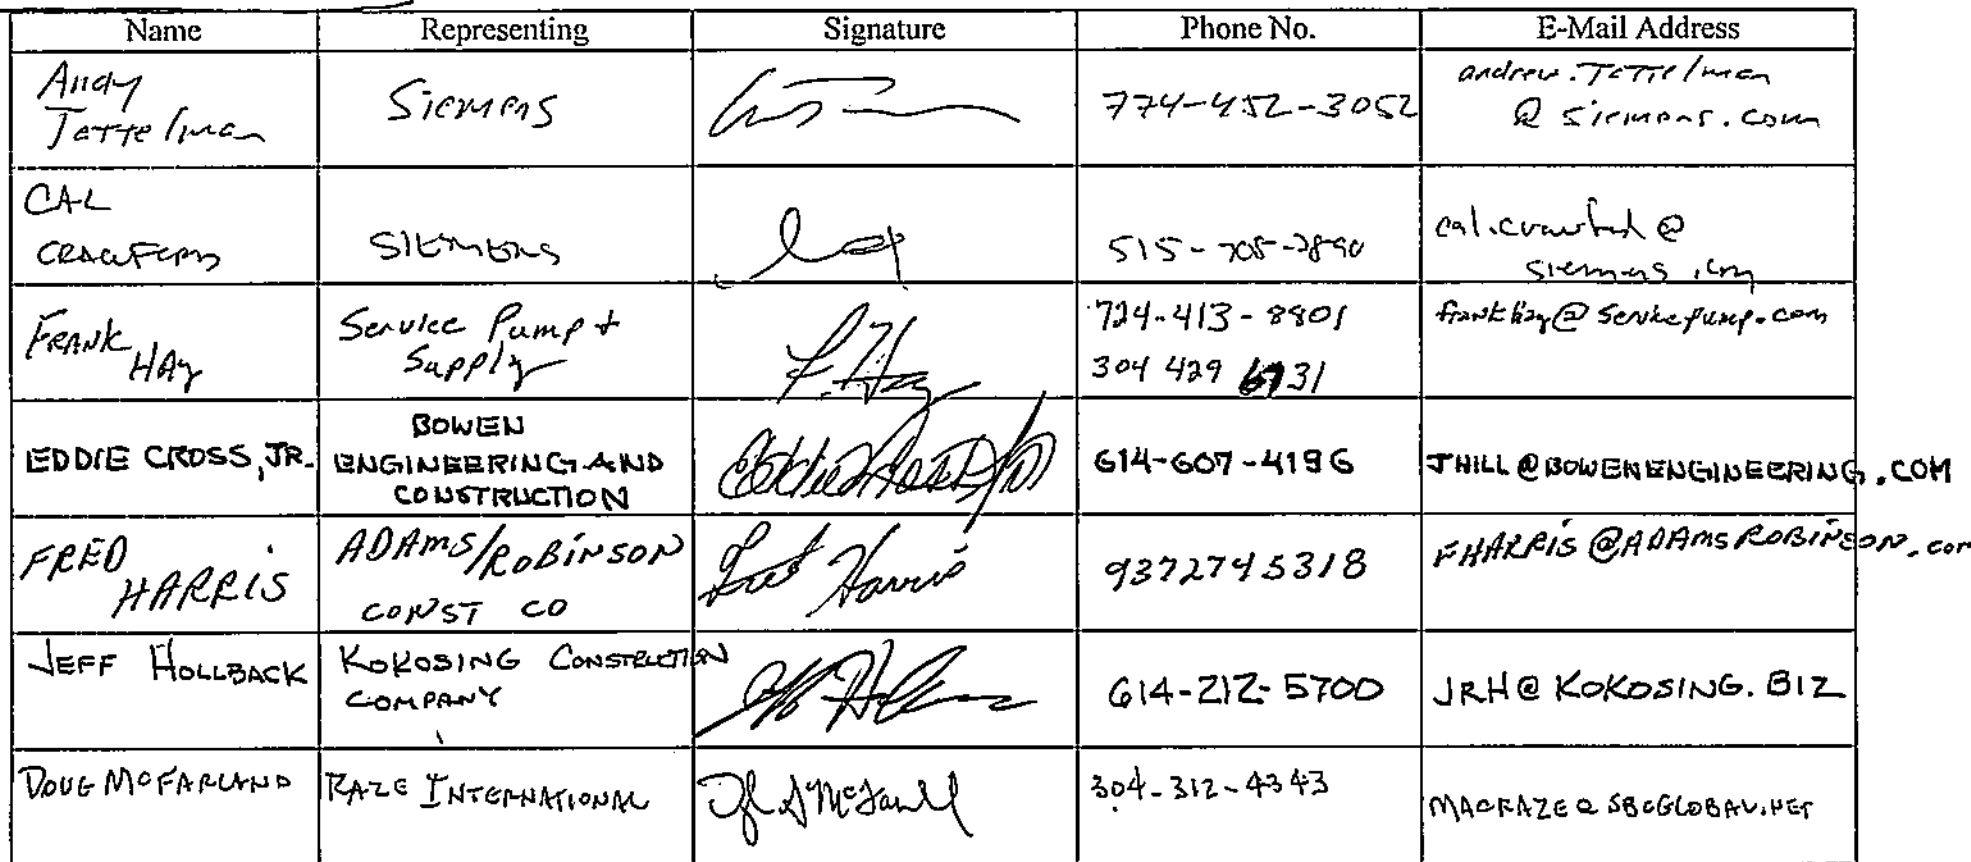 Name Representing Signature Phone No. E-Mail Address
Andy
Tettelman
Siemens
774-452-3052
andrew.Tettelman
@ siemens.com
CAL
CRAWFORD
SIEMENS
515-705-2890
cal.crawford@
siemens.com
FRANK
HAY
Service Pump +
Supply
F. Hay
724-413-8801
304 429 6731
frankhay@servicepump.com
EDDIE CROSS, JR.
BOWEN
ENGINEERING AND
CONSTRUCTION
Eddie Cross Jr
614-607-4196
JHILL@BOWENENGINEERING.COM
FRED
HARRIS
ADAMS/ROBINSON
CONST CO
Fred Harris
9372745318
FHARRIS@ADAMSROBINSON.com
JEFF HOLLBACK
KOKOSING CONSTRUCTION
COMPANY
614-212-5700
JRH@KOKOSING.BIZ
DOUG MCFARLAND
RAZE INTERNATIONAL
304-312-4343
MACRAZE@SBCGLOBAL.NET